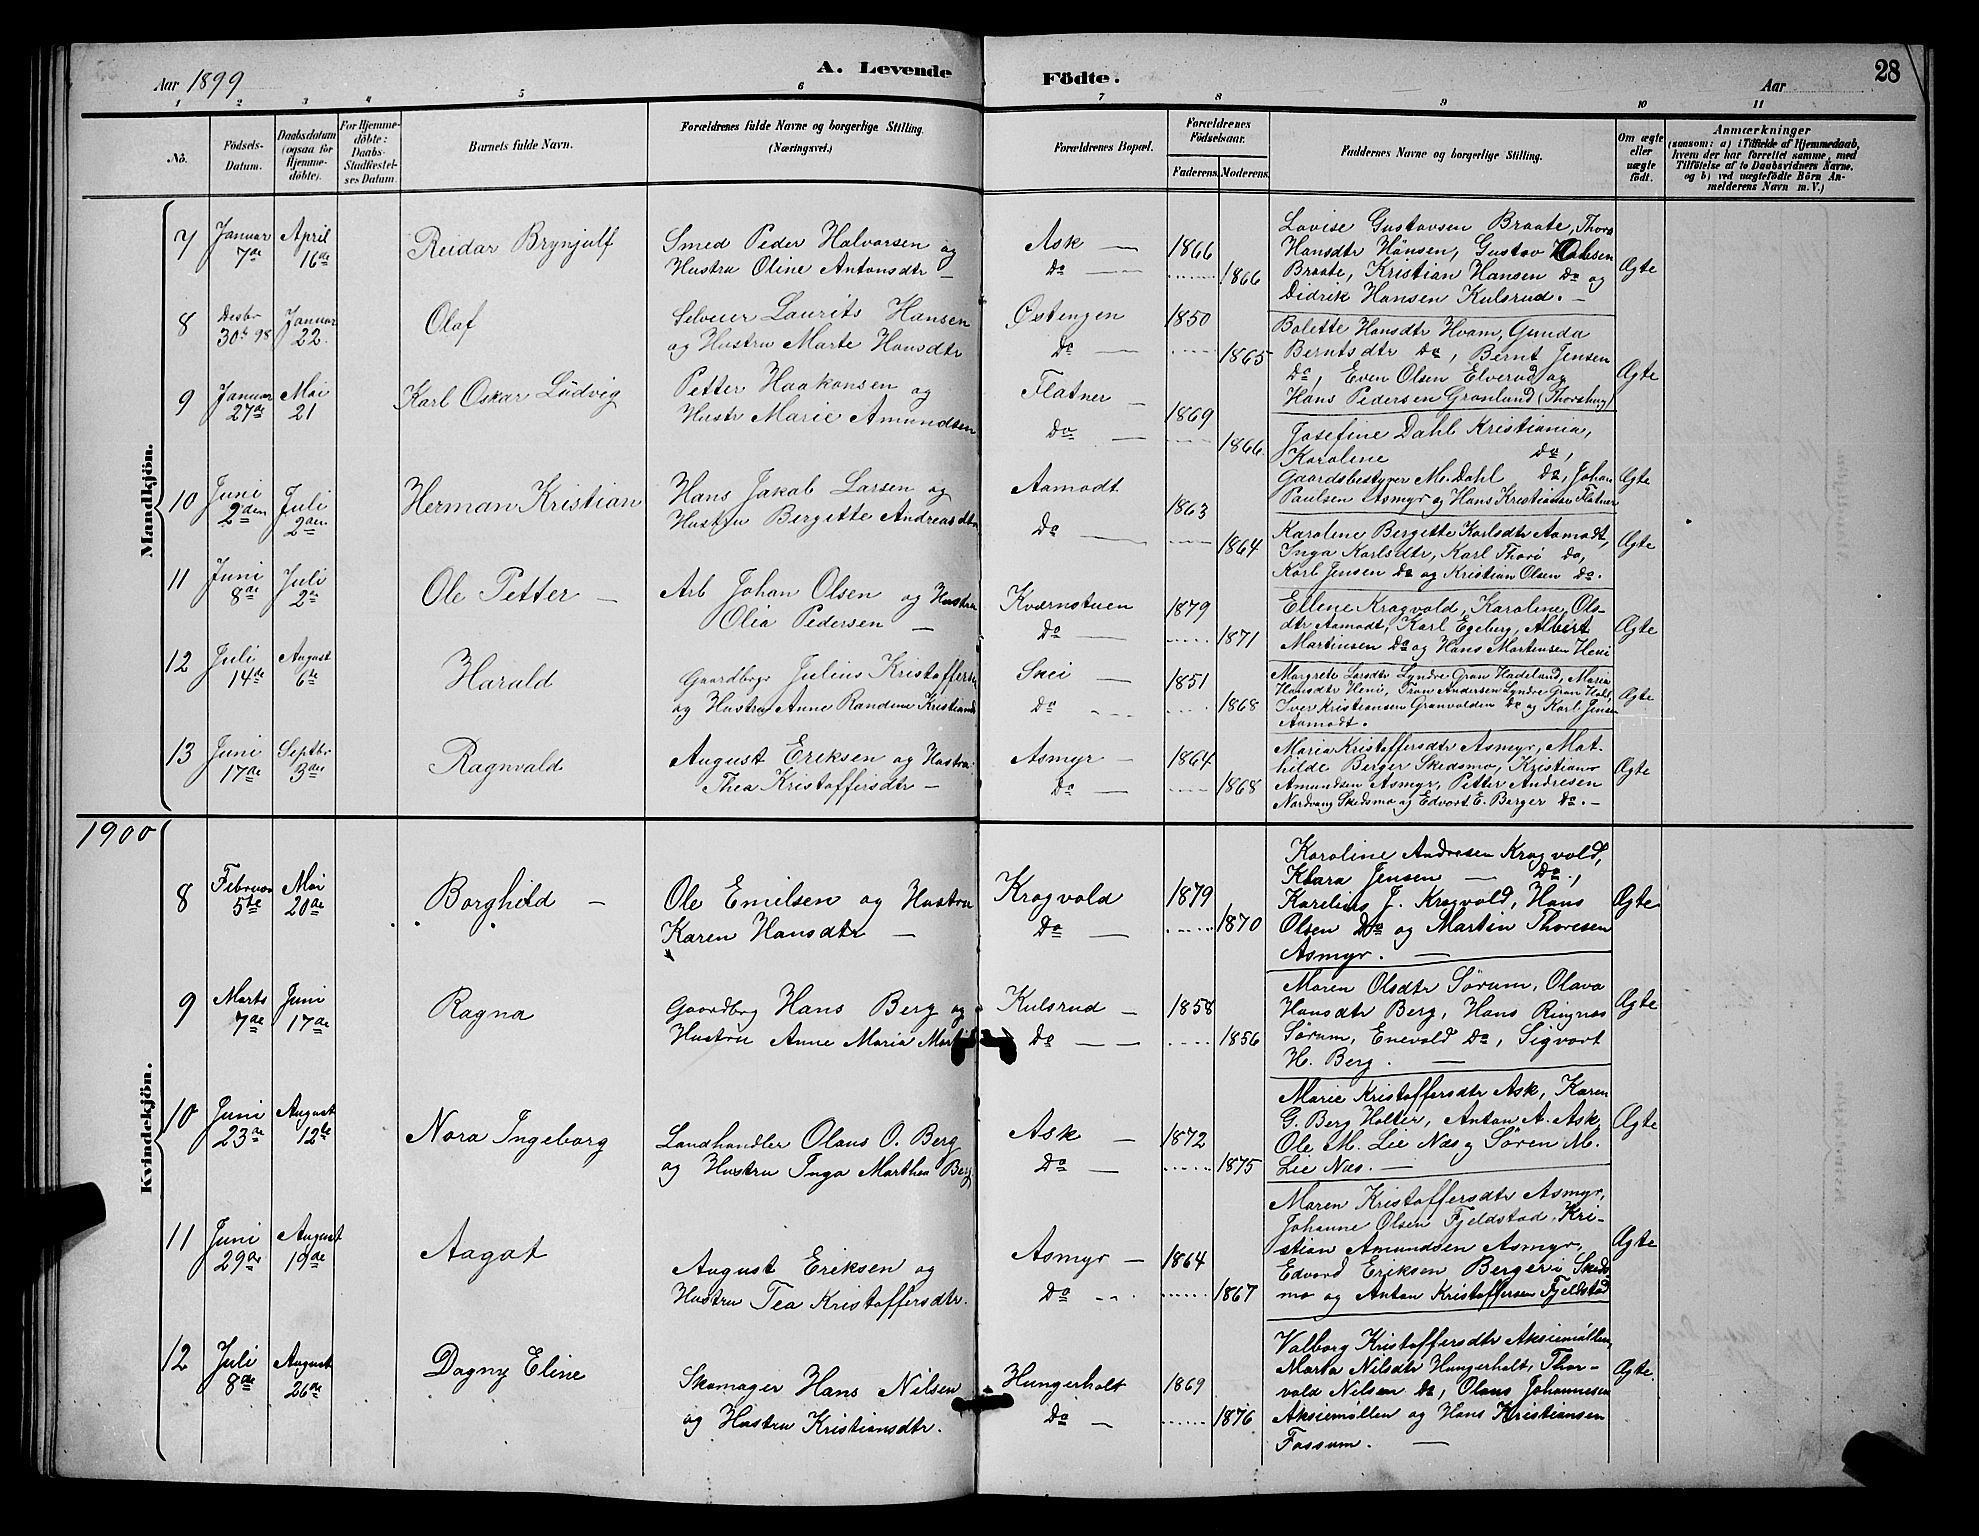 Aar 1899
A. Levende Födte.
Aar
28
1 2 3 4 5 6 7 8 9 10 11
No.
Födsels-Datum.
Daabsdatum (ogsaa for Hjemme-döbte).
For Hjemme-döbte: Daabs-Stadfæstel-ses Datum.
Barnets fulde Navn.
Forældrenes fulde Navne og borgerlige Stilling. (Næringsvei.)
Forældrenes Bopæl.
Forældrenes Födselsaar.
Faderens. Moderens.
Faddernes Navne og borgerlige Stilling.
Om ægte eller uægte födt.
Anmærkninger
(saasom: a) i Tilfælde af Hjemmedaab, hvem der har forrettet samme, med Tilföielse af to Daabsvidners Navne, og b) ved uægtefödte Börn An-melderens Navn m. V.)
Mandkjön.
7 Januar 7de April 16de Reidar Brynjulf
Smed Peder Halvorsen og
Hustru Oline Antonsdtr —
Ask — 1866
Do — 1866
Lovise Gustavsen Braate, Thora
Hansdtr Hånsen, Gustav
Braate, Kristian Hansen Do og
Didrik Hansen Kulsrud. —
Ægte
8 Desbr 30te 98 Januar 22. Olaf
Selveier Laurits Hansen
og Hustru Marte Hansdtr
Østengen 1850
Do — 1865
Bolette Hansdtr Hvam, Gunda
Berntsdtr Do, Bernt Jensen
Do, Even Olsen Elverud og
Hans Pedersen Grønlund (Thorshug)
Ægte
9 Januar 27de Mai 21 Karl Oskar Ludvig
Petter Haakonsen og
Hustr Marie Amundsen
Flatner — 1869
Do — 1866
Josefine Dahl Kristiania,
Karolene Do,
Gaardsbestyrer M. Dahl Do, Johan
Paulsen Asmyr og Hans Kristiansen Flatner
Ægte
10 Juni 2den Juli 2den Herman Kristian
Hans Jakob Larsen og
Hustru Bergitte Andreasdtr
Aamodt 1863
Do — 1864
Karolene Bergitte Karlsdtr Aamodt,
Inga Karlsdtr, Karl Thori do,
Karl Jensen Do og Kristian Olsen Do.
Ægte
11 Juni 8de Juli 2de Ole Petter —
Arb Johan Olsen og Hustru
Olia Pedersen —
Kværnstuen 1879
Do — 1871
Ellene Kragvold, Karolene Ols-
dtr Aamodt, Karl Egeberg, Albert
Martinsen Do og Hans Mortensen Heni
Ægte
12 Juli 14de August 6te Harald
Gaardbrgr Julius Kristoffersen
og Hustru Anne Randine Kristians
Skei — 1851
Do 1868
Margrete Larsdtr Lyndre Gran Hadeland, Maria
Hansdtr Heni, Tron Andersen Lyndre Gran Hadel,
Iver Kristiansen Granvolden Do og Karl Jensen
Aamodt.
Ægte
13 Juni 17de Septbr 3die Ragnvald
August Eriksen og Hustru
Thea Kristoffersdtr —
Asmyr — 1864
Do — 1868
Maria Kristoffersdtr Asmyr, Mat-
hilde Berger Skedsmo, Kristian
Amundsen Asmyr, Petter Andresen
Nordvang Skedsmo og Edvart E. Berger Do. —
Ægte
1900
Kvindekjön.
8 Februar 5te Mai 20de Borghild —
Ole Emilsen og Hustru
Karen Hansdtr —
Kragvold 1879
Do — 1870
Karoline Andresen Kragvold,
Klara Jensen — Do,
Karelius J. Kragvold, Hans
Olsen Do og Martin Thoresen
Asmyr. —
Ægte
9 Marts 7de Juni 17de Ragna
Gaardbrg Hans Berg og
Hustru Anne Maria
Kulsrud — 1858
Do — — 1856
Maren Olsdtr Sørum, Olava
Hansdtr Berg, Hans Ringnæs
Sørum, Enevold Do, Sigvart
H. Berg. —
Ægte
10 Juni 23de August 12te Nora Ingeborg
Landhandler Olaus O. Berg
og Hustru Inga Marthea Berg
Ask — 1872
Do — 1875
Marie Kristoffersdtr Ask, Karen
G. Berg Holter, Anton A. Ask,
Ole M. Lie Næs og Søren M.
Lie Næs. —
Ægte
11 Juni 29de August 19de Aagot
August Eriksen og
Hustru Tea Kristoffersdtr.
Asmyr — 1864
Do 1867
Maren Kristoffersdtr Asmyr,
Johanne Olsen Fjeldstad, Kri-
stian Amundsen Asmyr,
Edvard Eriksen Berger i Skeds
mo og Anton Kristoffersen Fjeldstad
Ægte
12 Juli 8de August 26de Dagny Eline
Skomager Hans Nilsen
og Hustru Kristiansdtr.
Hungerholt 1869
Do — 1876
Valborg Kristoffersdtr Aksiemøllen,
Marta Nilsdtr Hungerholt, Thor-
vald Nilsen Do, Olaus Johannesen
Aksiemøllen og Hans Kristiansen
Fossum. —
Ægte.